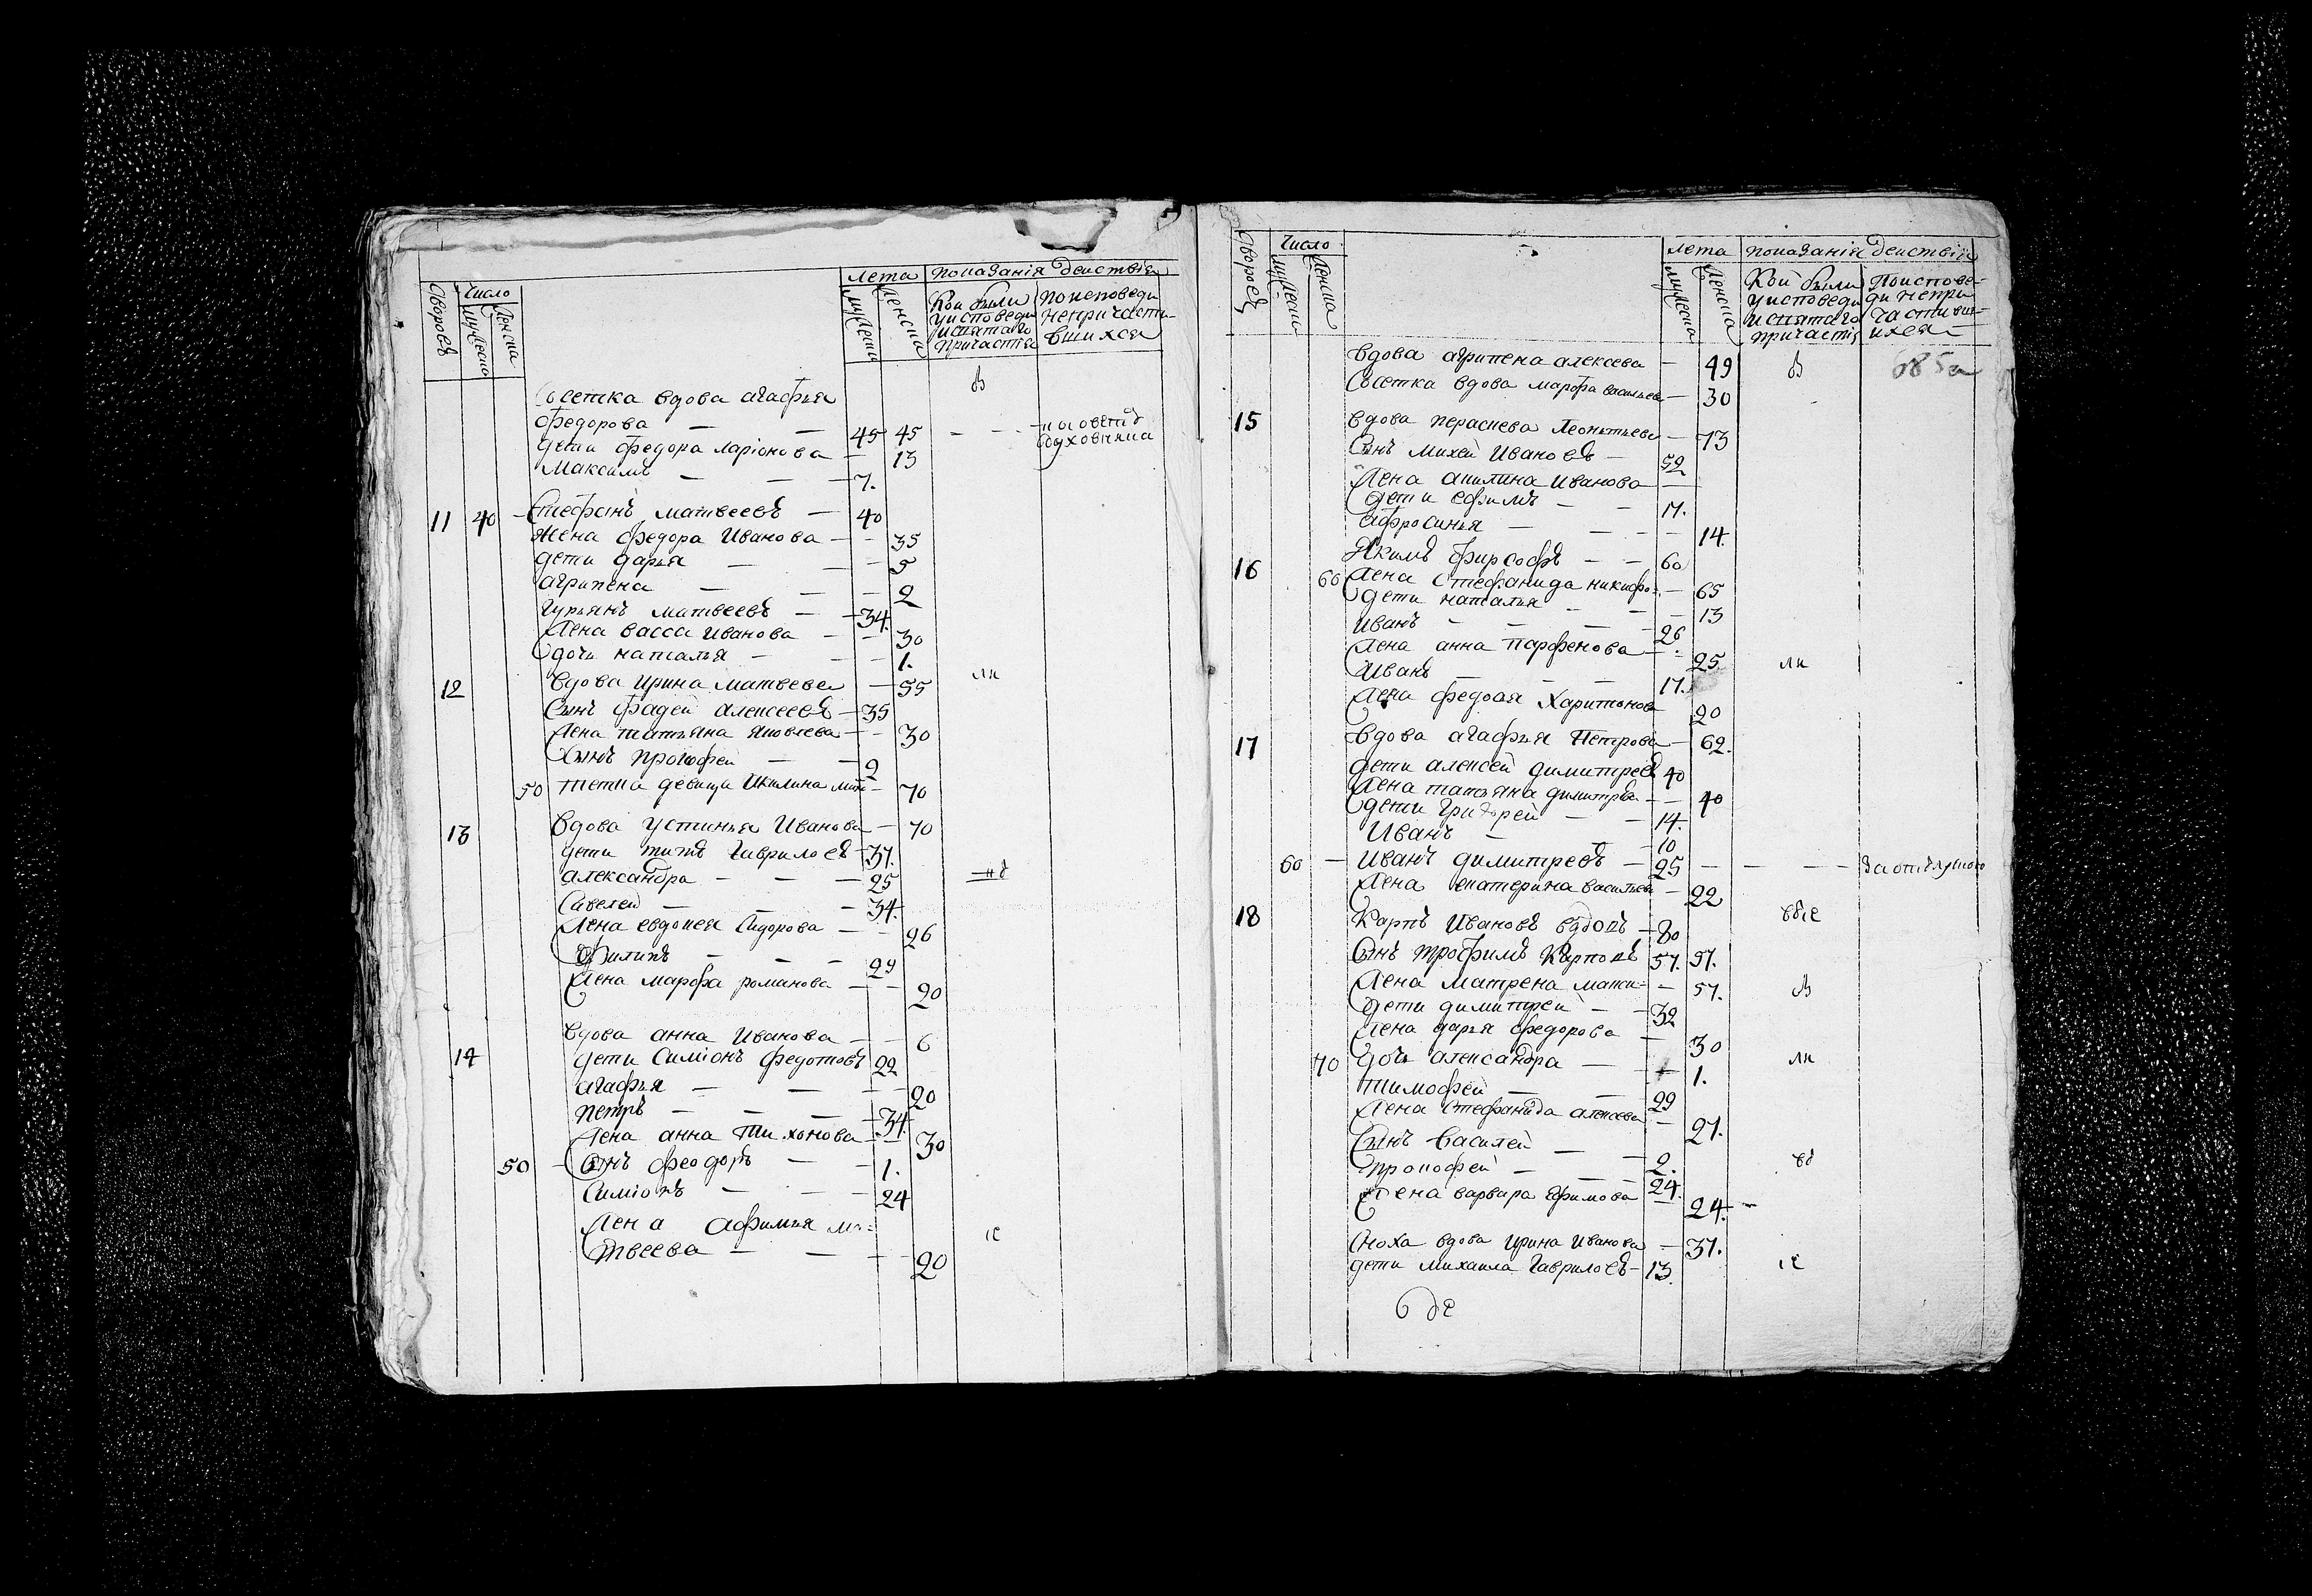 Дворовъ
Число
мужеска
женска
лета
мужеска
женска
показанія действія
Кои были
у исповеди
и святаго
причастія
по исповеди
непричасти-
вшихся
вдова агафья
федорова — — 45 45
дети федора ларіонова — 13
Максимъ — — 7.
11 40 Стефанъ матвеевъ — 40
Жена федора Иванова — 35
дети дарья — 5
агрипена — — 2
Гурьянъ матвеевъ — 34.
Жена васса Иванова — 30
дочь наталья — — 1.
12 вдова ирина матвеева — 55
Сынъ фадей алексеевъ — 35
Жена татьяна яковлева — 30
Сынъ прокофей — — 2
50 тетка девица 70
13 Вдова устинья Иванова — 70
дети титъ гавриловъ — 37.
александра — — — 25
Савелей — — — 34.
Жена евдокея Сидорова — 26
Филипъ — — — 29
Жена марфа романова — — 20
вдова анна Иванова — 6
14 дети Симіонъ федотовъ 22
агафья — — — 20
петръ — — — 34.
Жена анна Тихонова — 30
50 Сынъ феодоръ — — 1.
Симіонъ — — — 24
Жена Афимья ма=
твеева — — — 20
Дворовъ
Число
мужеска
женска
лета
мужеска
женска
показанія действія
Кой были
у исповеди
и святаго
причастія
По испове-
ди непри-
частивш-
ихся
вдова агрипена алексева — 49
вдова марфа васильева — 30
15 вдова Леонтьева — 73
Сынъ михей Ивановъ — 52
Жена акилина иванова —
Дети ефимъ — — 17.
Афросинья — — — 14.
16 Якимъ фирсофъ — — 60
60 Жена Стефанида никифо= — 65
дети наталья — — — 13
иванъ — — — 26
Жена анна парфенова — 25
Иванъ — — — 17.
Жена Харитонова 20
17 вдова агафья Петрова — 62.
дети алексей димитревъ 40
Жена татьяна димитрева — 40
дети григорей — — 14.
Иванъ — — 10
60 — Иванъ димитревъ — 25
Жена екатерина васильева — 22
18 Карпъ Ивановъ вдовъ — 80
Сынъ трофимъ Карповъ 57. 57.
Жена матрена — 57.
Дети димитрей — — 32
Жена дарья федорова — 30
70 дочь александра — — 1.
тимофей — — 29
Жена Стефанида алексева — 27.
Сынъ василей — — 2.
прокофей — — — 24.
Жена варвара Ефимова — 24. —
Сноха вдова ирина иванова — 37.
дети михаила гавриловъ — 13.